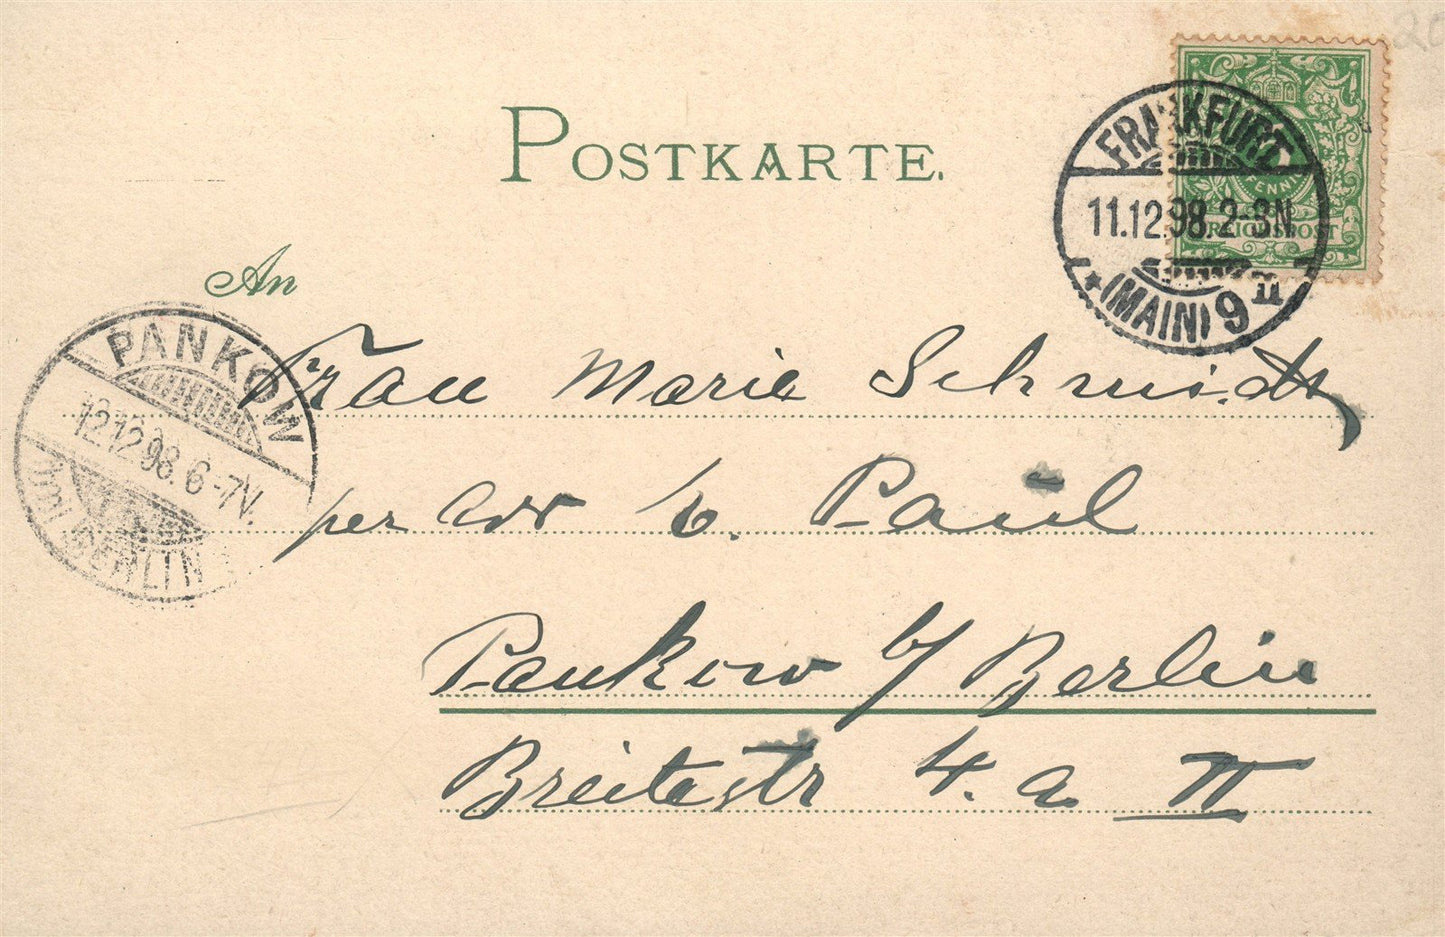 20
POSTKARTE.
FRANKFURT
11.12.98.2-3N
* (MAIN) 9 II
PFENNIG
REICHSPOST
An
PANKOW
12.12.98.6-7V.
(BERLIN)
Frau Marie Schmidt
per Adr v. Paul
Pankow b/ Berlin
Breitestr 4. a II